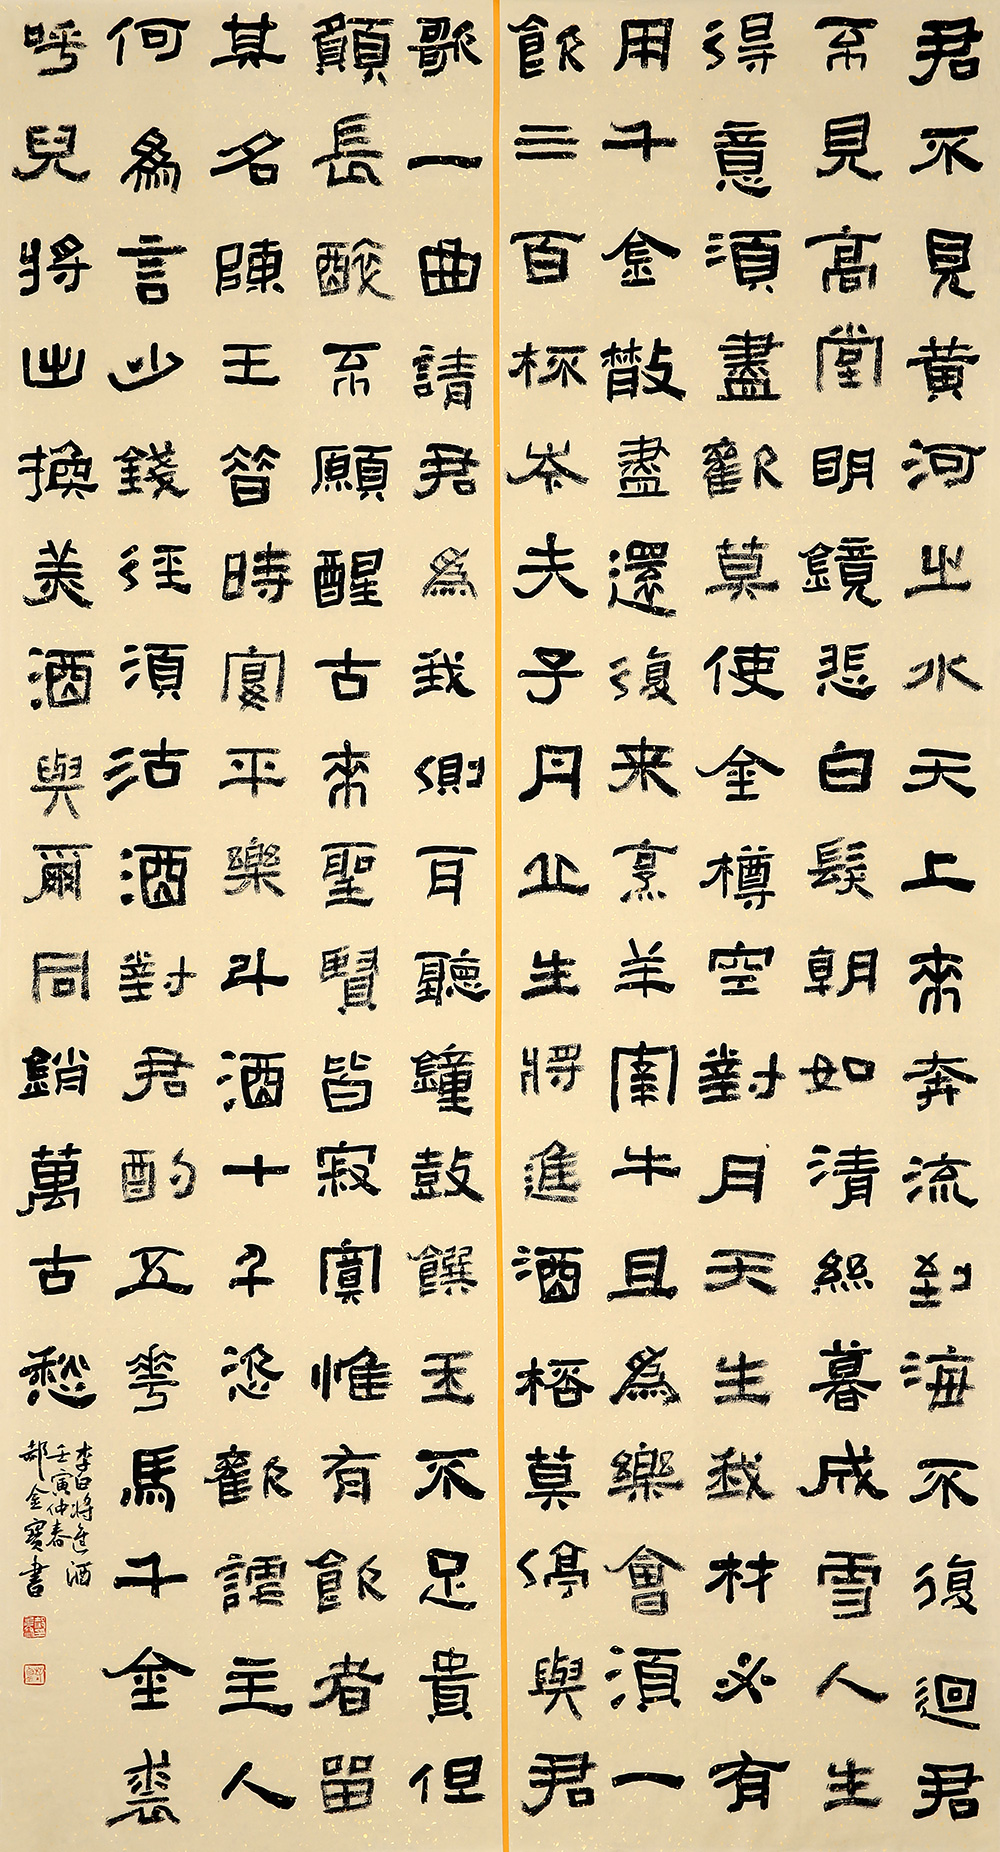 君不見黃河之水天上來奔流到海不復迴君
不見高堂明鏡悲白髮朝如清絲暮成雪人生
得意須盡歡莫使金樽空對月天生我材必有
用千金散盡還復来烹羊宰牛且為樂會須一
飲三百杯岑夫子丹丘生將進酒桮莫停與君
歌一曲請君為我側耳聽鐘鼓饌玉不足貴但
願長醉不願醒古來聖賢皆寂寞惟有飲者留
其名陳王昔時宴平樂斗酒十千恣歡謔主人
何為言少錢徑須沽酒對君酌五花馬千金裘
呼兒將出換美酒與爾同銷萬古愁
李白將進酒
壬寅仲春
郝金寶書